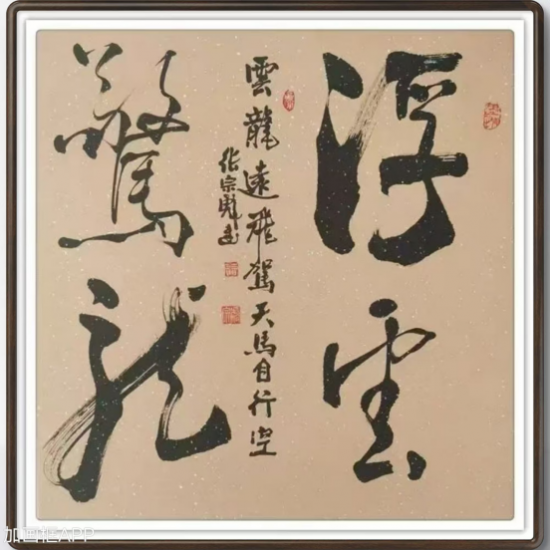 浮雲
驚龍
雲龍遠飛駕天馬自行空
張宗彪書
加画框APP